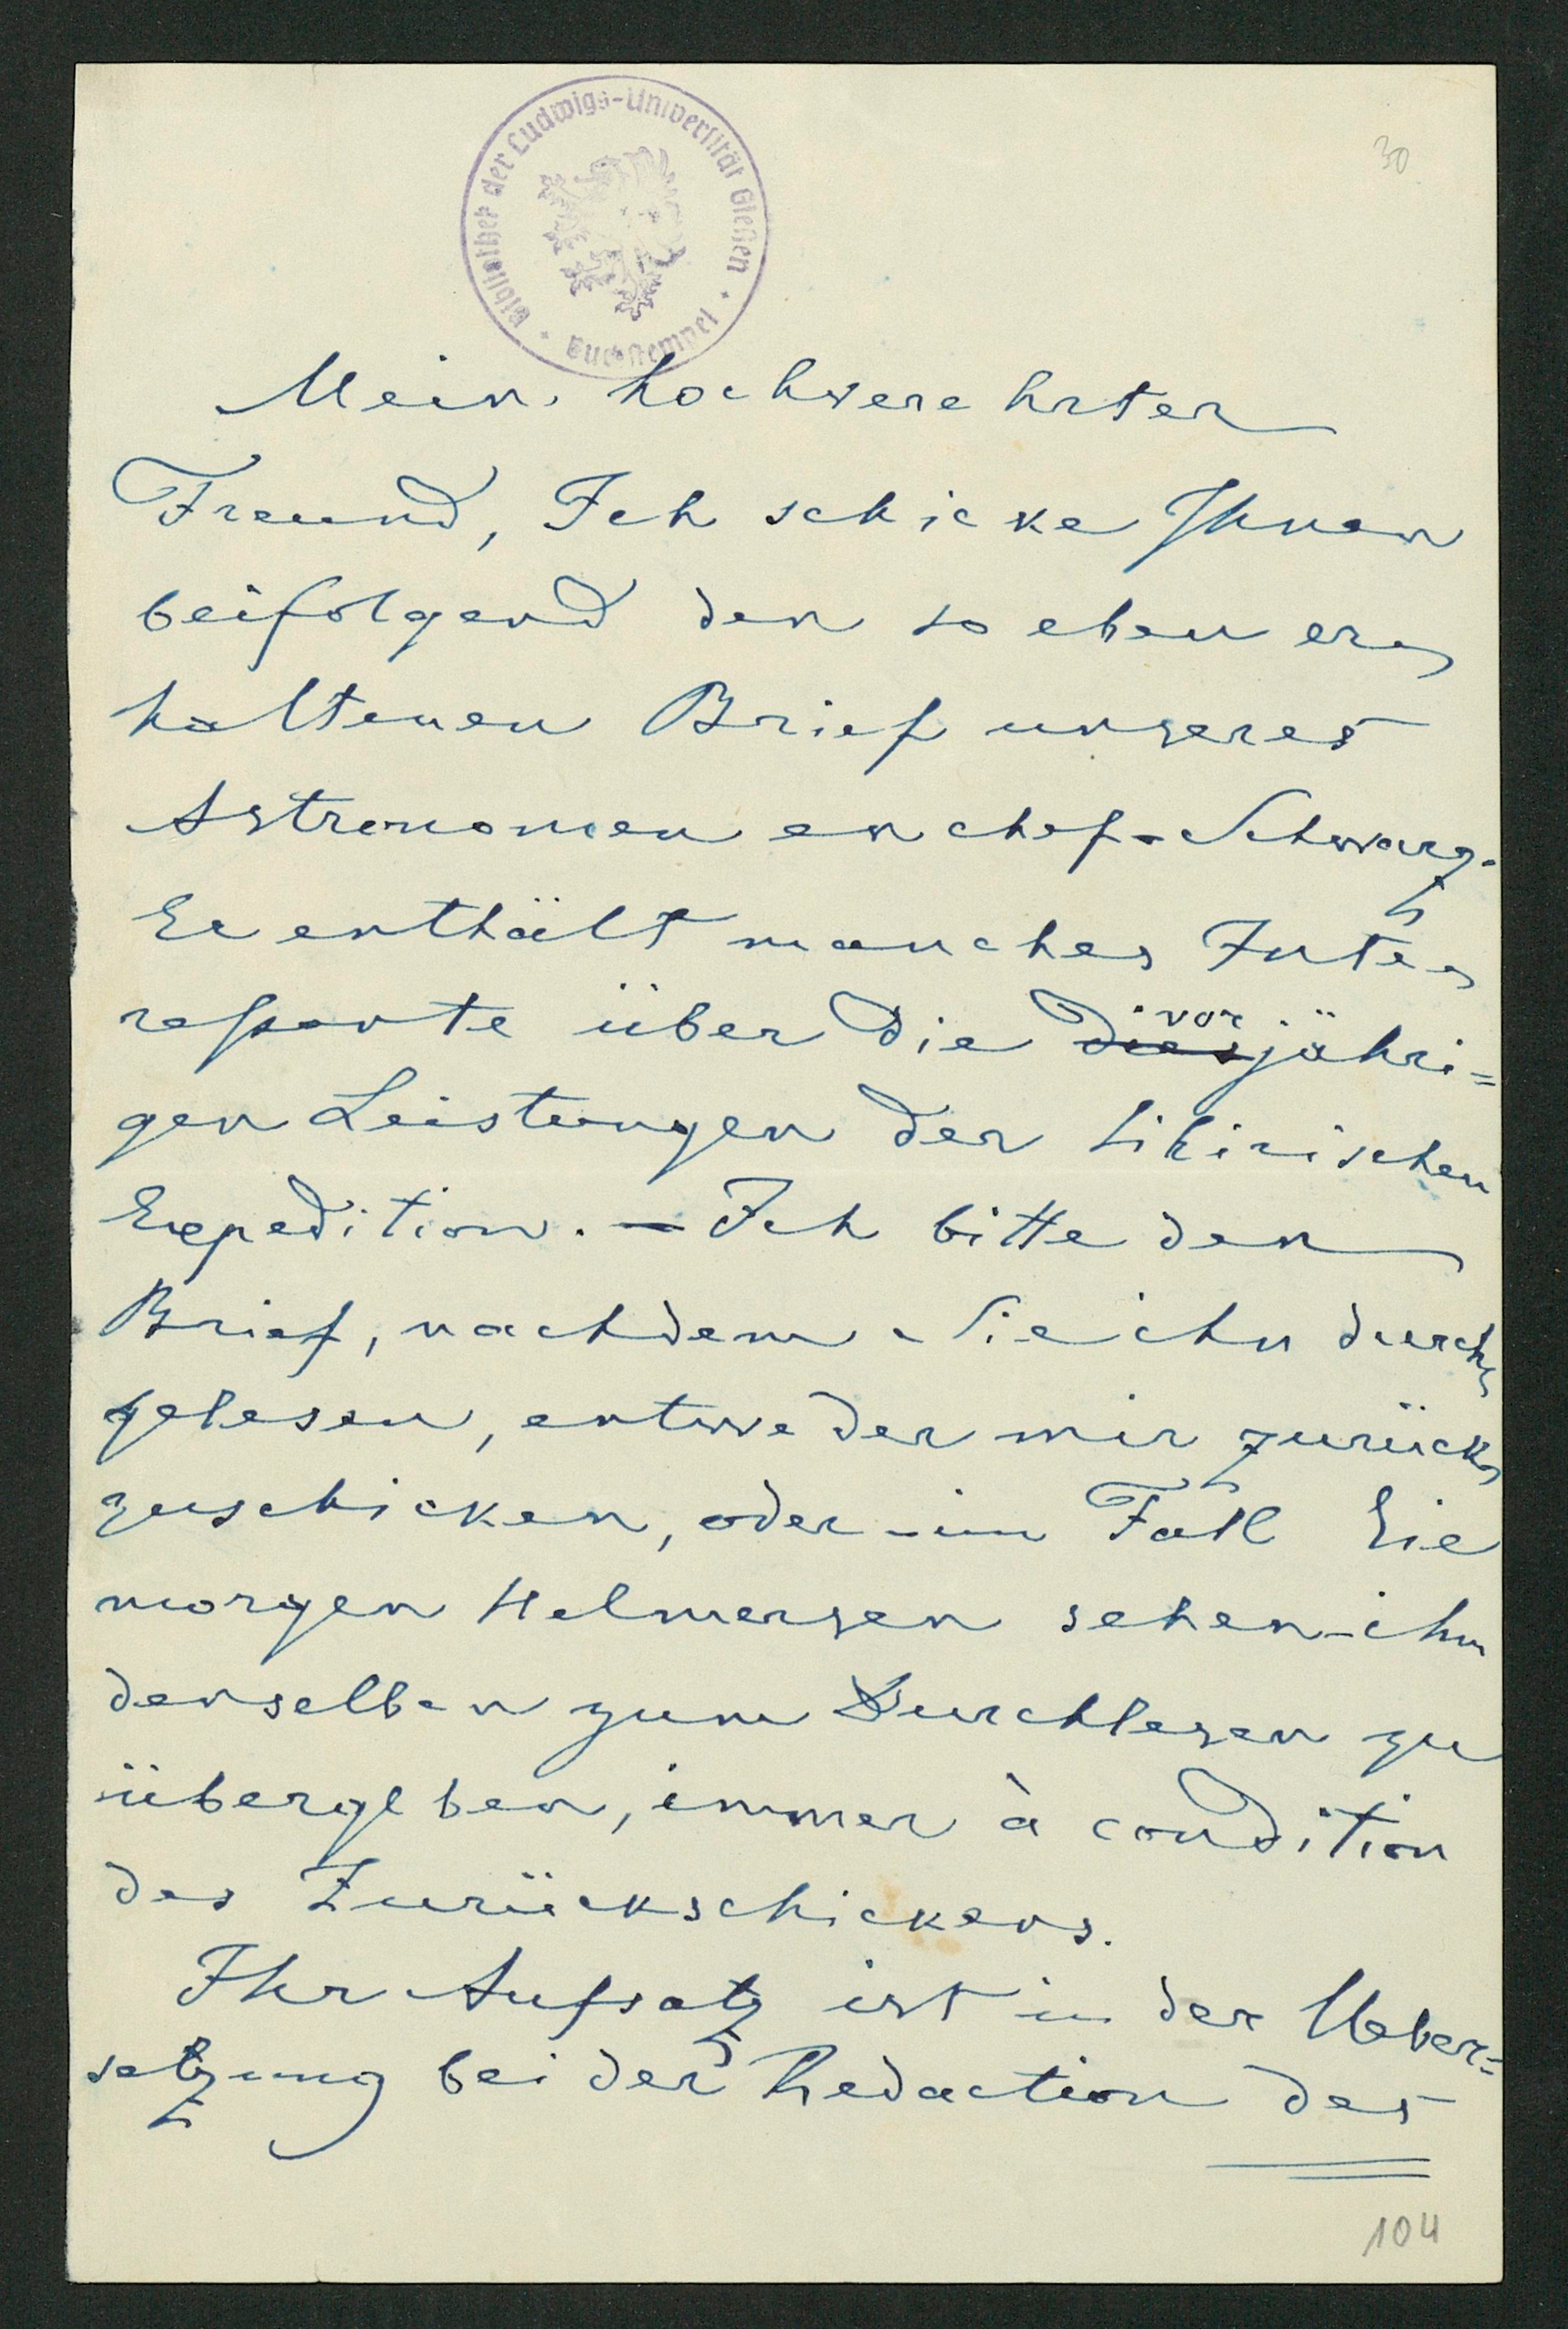 Bibliothek der Ludwigs-Universität Gießen · Buchstempel ·
30
Mein hochverehrter
Freund, Ich schicke Ihnen
beifolgend den so eben er-
haltenen Brief unseres
Astronomen en chef - Schwarz.
Er enthält manches Inte-
ressante über die dies vor jähri=
gen Leistungen der Sibirischen
Expedition. — Ich bitte den
Brief, nachdem Sie ihn durch-
gelesen, entweder mir zurück-
zuschicken, oder - im Fall Sie
morgen Helmersen sehen - ihm
denselben zum Durchlesen zu
übergeben, immer à condition
des Zurückschickens.
Ihr Aufsatz ist in der Ueber=
setzung bei der Redaction des
104